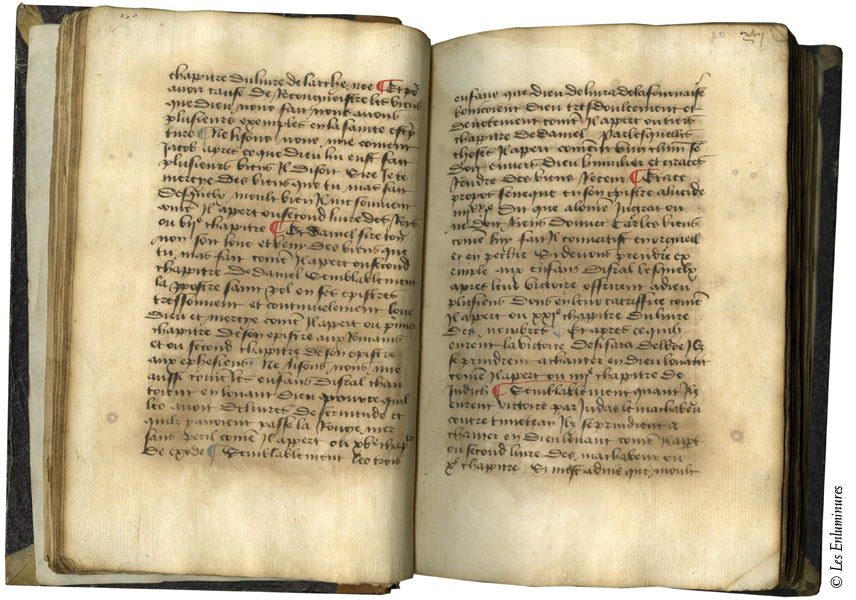 chapitre du livre de larche noe ¶ Et po᷑
avoir cause de Recongnoistre les biens
que dieu nous fait nous avons
plusieurs exemples en la sainte escp̄
ture ¶ Ne lisons nous mie coment
Jacob apres ce que dieu luy eust fait
plusieurs biens Il disoit Sire Je te
mercye des biens que tu mas fait
Desquelx moult bien Il me souvient
com̄t Il appert ou second livre des Roys
ou vije chapitre ¶ Et daniel sire ton
non soit loue et beny Des biens que
tu mas fait com̄t Il appert ou second
chapitre de daniel Semblablement
la postre saint pol en ses epistres
tressouvent et continuelement loue
Dieu et mercye com̄t Il appert ou p̄mier
chapitre de son epistre aux Romains
et ou second chapitre de son epistre
aux ephesiens Ne lisons nous mie
aussi com̄t les enfans disrael chan
toient en louant dieu pource quil
les avoit delivres de servitude et
quilz avoient passe la Rouge mer
sans peril com̄e Il appert ou xve chap̄
De exode ¶ Semblablement les trois
20 xvij
enfans que dieu delivra de la fournaise
louoient dieu tresdoulcement et
devotement com̄t Il appert ou tiers
chapitre de daniel Par lesquelles
choses Il appert com̄ent ung chūn se
doit envers dieu humilier et graces
Rendre des biens Receuz ¶ Et a ce
propos seneque en son epistre
Dit que a lome Ingrat on
ne doit Riens donner Car les biens
come luy fait Il convertist en orgueil
et en pechie Si devons prendre ex
emple aux enfans disrael lesquelx
apres leur victoire offrirent a dieu
plusieurs dons en leur sacriffice com̄t
Il appert ou xxxje chapitre du livre
Des nombres Et apres ce quilz
eurent la victoire de sisara delbore Ilz
se prindrent a chanter en dieu louant
com̄e Il appert ou iiije chapitre de
Judich ¶ Semblablement quant Ilz
eurent victoire par Judas le machabeu
contre timoteam Ilz se prindrent a
chanter en dieu louant com̄t Il app̄t
ou second livre des machabeux ou
xe chapitre Si mest advis que moult
© Les Enluminures